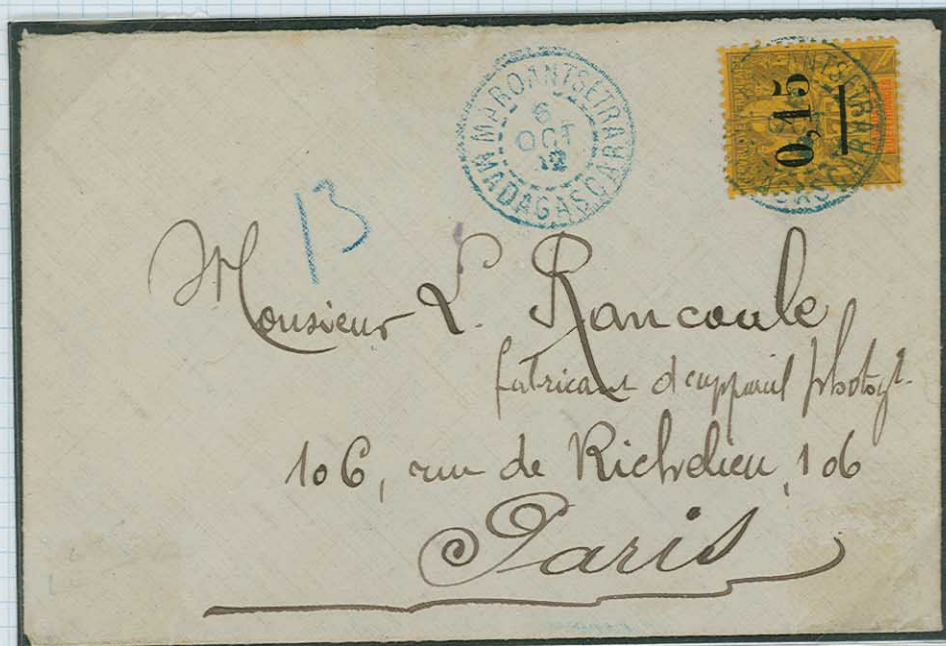 MAROANTSETRA
6
OCT
12
MADAGASCAR
0,15
13
Monsieur L. Rancoule
fabricant d'appareil photogr.
106, rue de Richelieu, 106
Paris